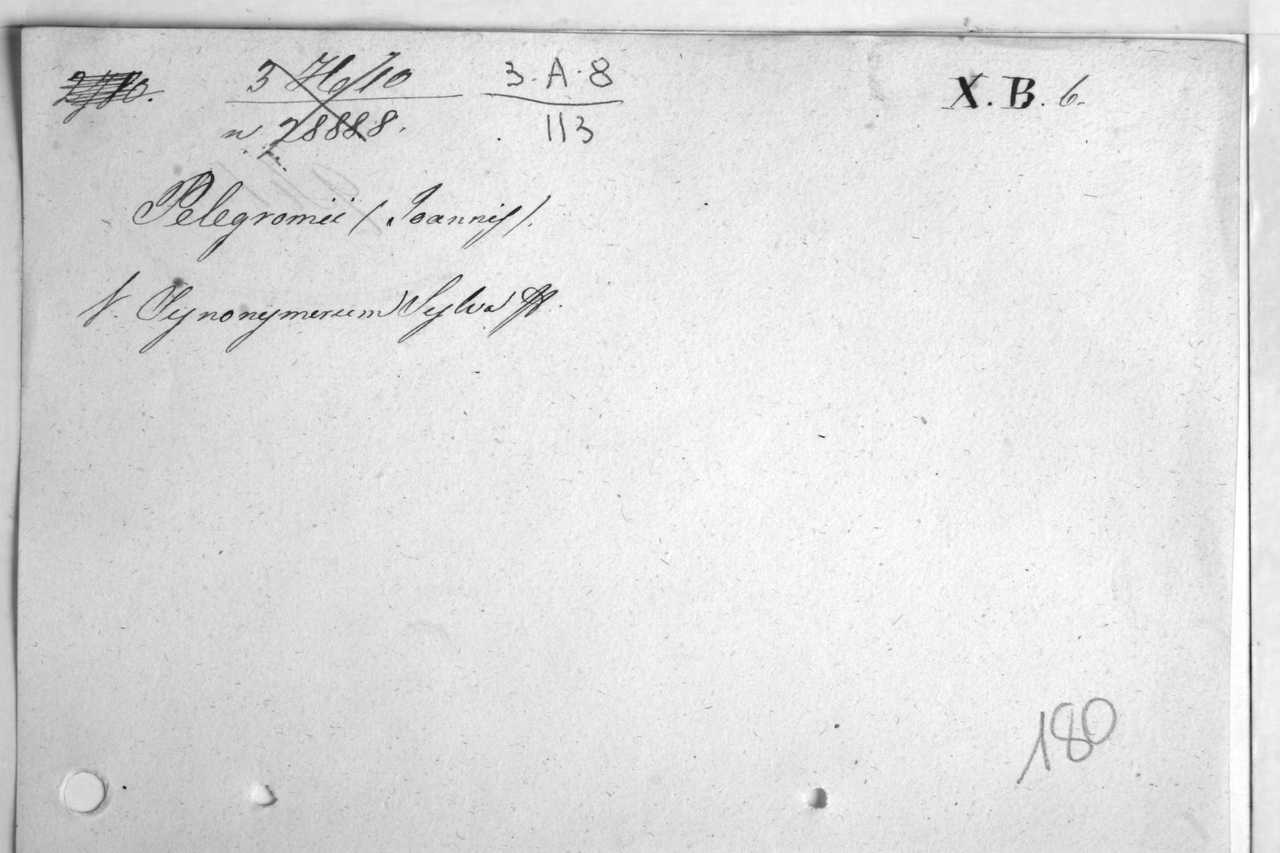 3 H/10 3-A-8 X. B. 6.
n. 28888. 113
Pelegromii (Joannis).
V. Synonymorum Sylva
180